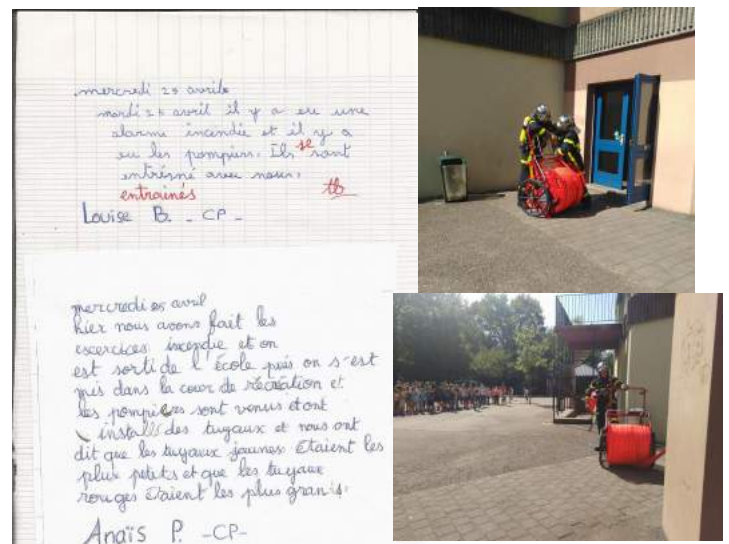 mercredi 25 avril
mardi 24 avril il y a eu une
alarme incendie et il y a
eu les pompiers. Ils se sont
entrésné avec nous.
entrainés tb
Louise B. - CP -
mercredi 25 avril
hier nous avons fait les
escercices incendie et on
est sorti de l'école puis on s'est
mis dans la cour de récréation et
les pompiers sont venus et ont
installé des tuyaux et nous ont
dit que les tuyaux jaunes étaient les
plus petits et que les tuyaux
rouges étaient les plus grands.
Anaïs P. -CP-